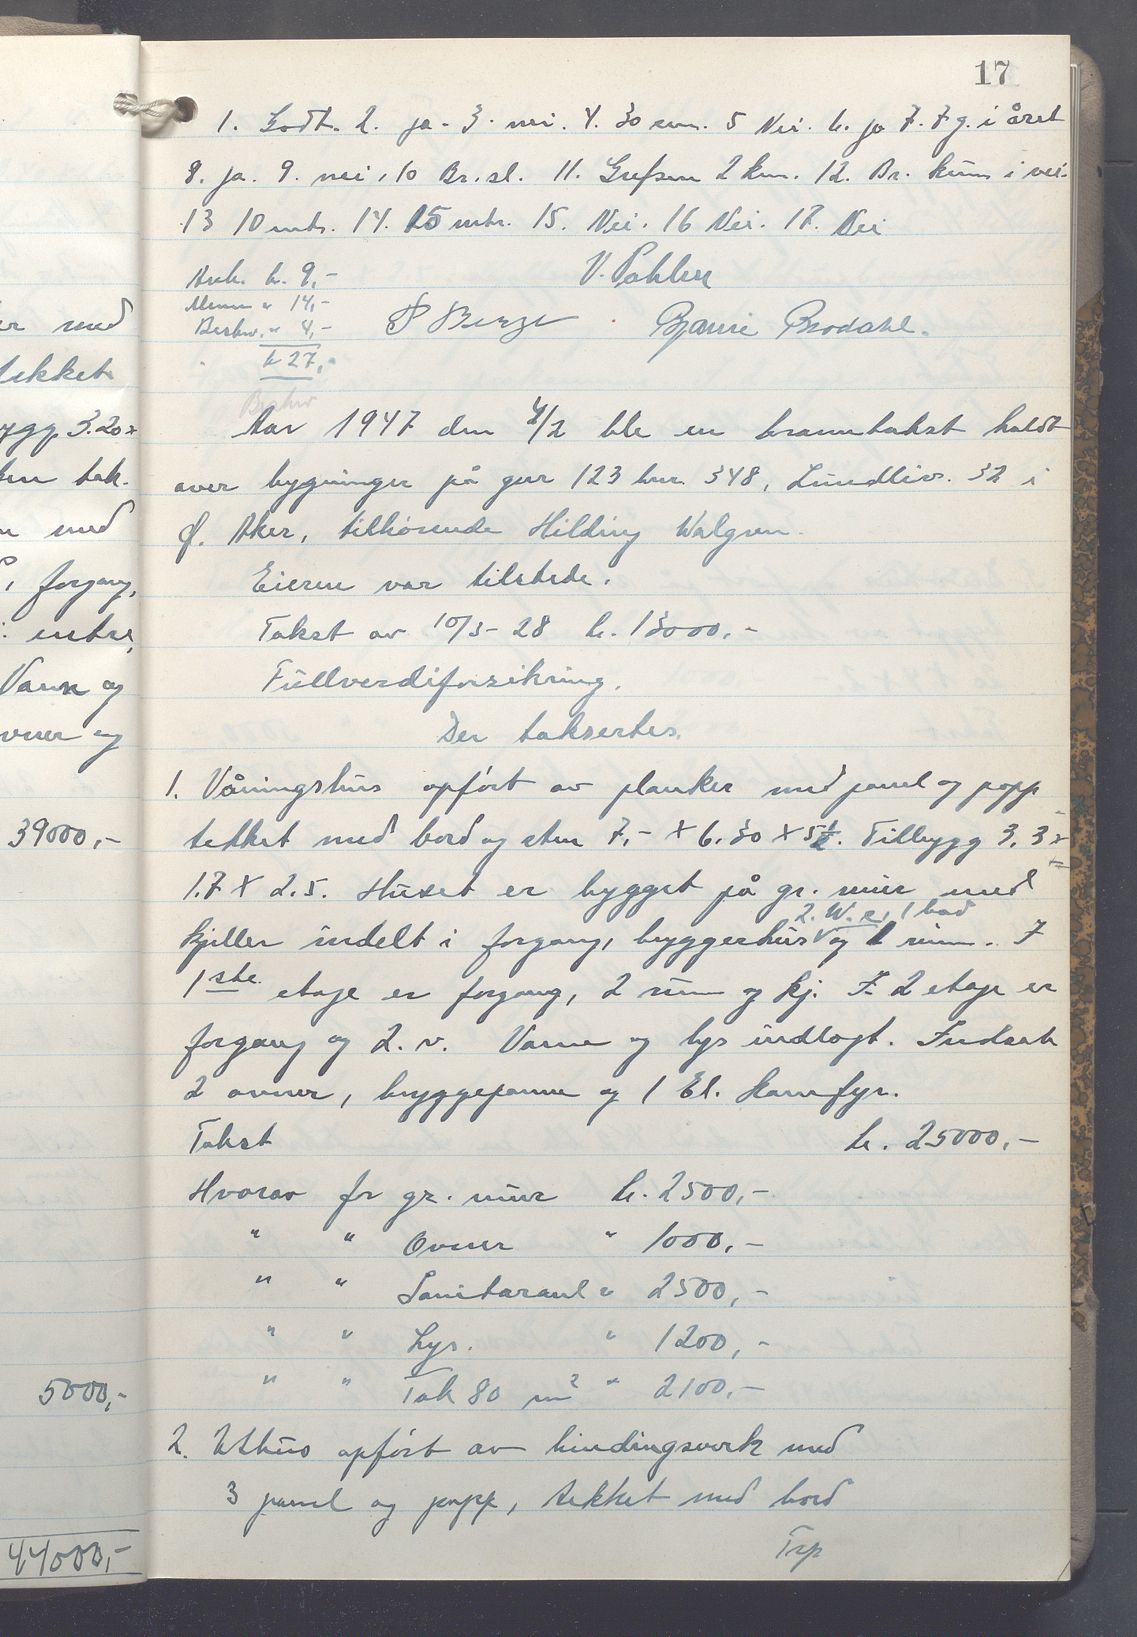 17
1. Godt. 2. ja. 3. nei. 4. 30 cm. 5 Nei. 6. ja 7. 7 g. i året
8. ja. 9. nei, 10 Br.sl. 11. Grefsen 2 km. 12. Br. kum i vei.
13 10 mtr. 14. 15 mtr. 15. Nei. 16 Nei. 17. Nei
kr. 9,-
V. Pahlen
" 14,-
Beskr. " 4,-
P Berge Bjarne Brodahl.
kr 27,-
Beskr
Aar 1947 den 4/2 ble en branntakst holdt
over bygninger på gnr 123 bnr. 348, Lundliv. 32 i
Ø. Aker, tilhørende Hilding Walgren.
Eieren var tilstede.
Takst av 10/5-28 kr. 13000,-
Fullverdiforsikring.
Der taksertes.
1. Våningshus opført av planker med panel og papp
tekket med bord og sten 7,- x 6.30 x 5½. Tilbygg 3.3 x
1.7 x 2.5. Huset er bygget på gr. mur med
2. W.c, 1 bad
kjeller indelt i forgang, bryggerhus og 1 rum. I
1ste etage er forgang, 2 rum og kj. I 2 etage er
forgang og 2. v. Vann og lys indlagt. Indsatt
2 ovner, bryggepanne og 1 El. komfyr.
Takst kr. 25000,-
Hvorav for gr. mur kr. 2500,-
" " Ovner " 1000,-
" " Sanitæranl " 2500,-
" " Lys. " 1200,-
" " Tak 80 m² " 2100,-
2. Uthus opført av bindingsverk med
3 panel og papp, tekket med bord
Trp
er med
tekket
ygg 3.20 x
tak.
med
forgang,
entre,
Vann og
ovner og
39000,-
5000,-
44000,-